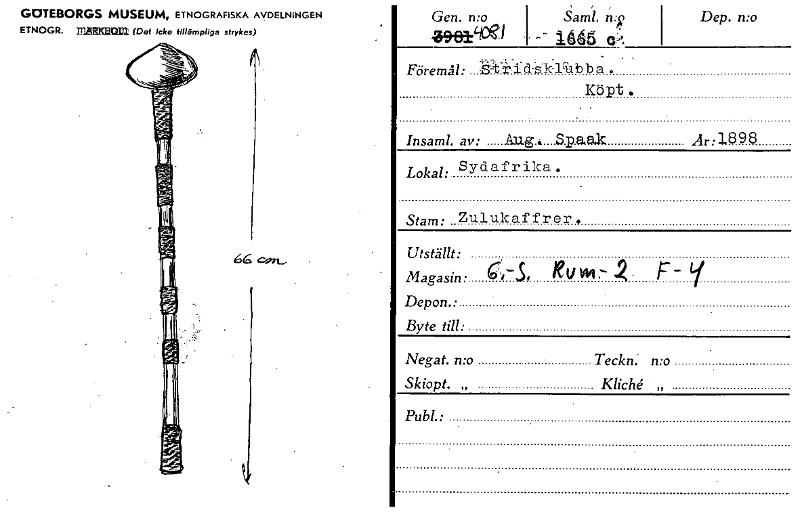 GÖTEBORGS MUSEUM, ETNOGRAFISKA AVDELNINGEN
ETNOGR. MARKEOL (Det icke tillämpliga strykes)
66 cm
Gen. n:o Saml. n:o Dep. n:o
3981 4081 1665 c
Föremål: Stridsklubba.
Köpt.
Insaml. av: Aug. Spaak År: 1898
Lokal: Sydafrika.
Stam: Zulukaffrer.
Utställt:
Magasin: 6.-S. Rum-2 F-4
Depon.:
Byte till:
Negat. n:o Teckn. n:o
Skiopt. „ Kliché „
Publ.: